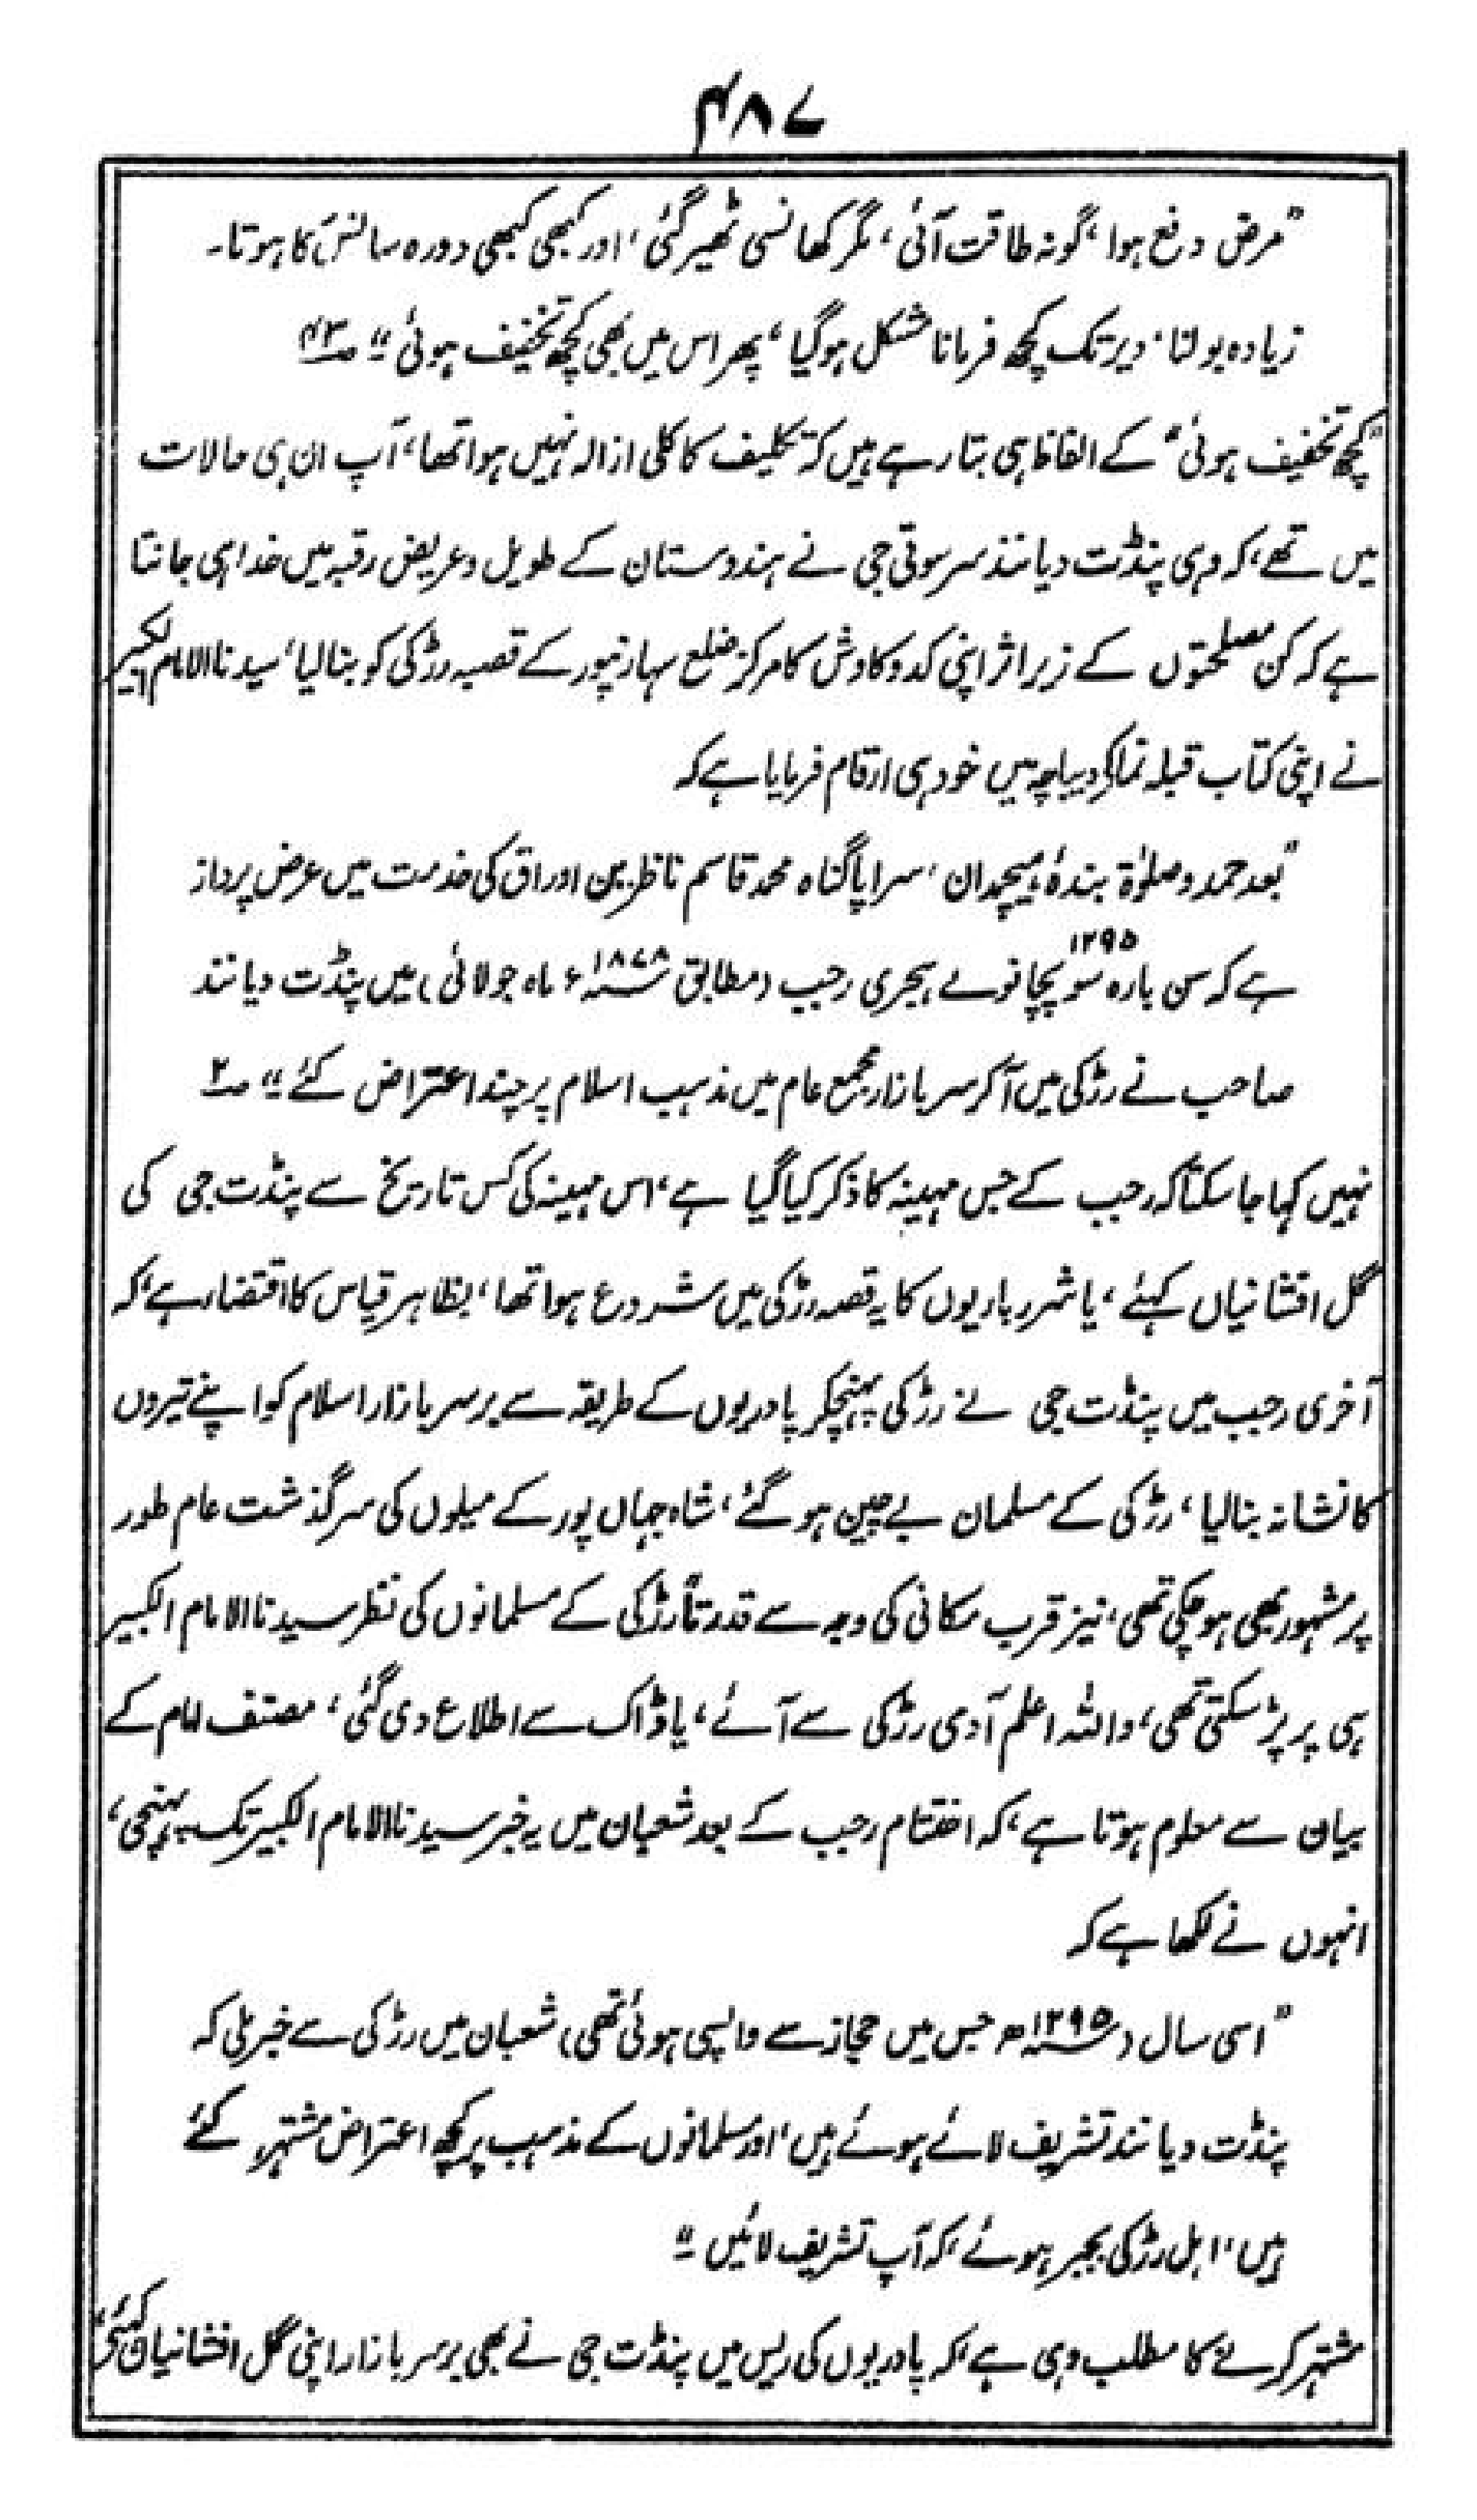 ۴۸۷
"مرض دفع ہوا، گونہ طاقت آئی، مگر کھانسی ٹھیر گئی، اور کبھی کبھی دورہ سانس کا ہوتا۔
زیادہ بولنا، دیر تک کچھ فرمانا مشکل ہوگیا، پھر اس میں بھی کچھ تخفیف ہوئی" ص۴۳
"کچھ تخفیف ہوئی" کے الفاظ ہی بتا رہے ہیں کہ تکلیف کا کلی ازالہ نہیں ہوا تھا، آپ ان ہی حالات
میں تھے، کہ وہی پنڈت دیانند سرسوتی جی نے ہندوستان کے طویل و عریض رقبہ میں خدا ہی جانتا
ہے کہ کن مصلحتوں کے زیر اثر اپنی کد و کاوش کا مرکز ضلع سہارنپور کے قصبہ رڑکی کو بنالیا، سیدنا الامام الکبیر
نے اپنی کتاب قبلہ نما کے دیباچہ میں خود ہی ارقام فرمایا ہے کہ
"بعد حمد و صلوٰۃ بندۂ ہیچمدان، سراپا گناہ محمد قاسم ناظرین اوراق کی خدمت میں عرض پرداز
ہے کہ سن بارہ سو پچانوے ۱۲۹۵ ہجری رجب (مطابق ۱۸۷۸ء ماہ جولائی) میں پنڈت دیانند
صاحب نے رڑکی میں آکر سر بازار مجمع عام میں مذہب اسلام پر چند اعتراض کئے" ص۲
نہیں کہا جا سکتا کہ رجب کے جس مہینہ کا ذکر کیا گیا ہے، اس مہینہ کی کس تاریخ سے پنڈت جی کی
گل افشانیاں کہئے، یا شرر باریوں کا یہ قصہ رڑکی میں شروع ہوا تھا، بظاہر قیاس کا اقتضاء ہے، کہ
آخری رجب میں پنڈت جی نے رڑکی پہنچکر پادریوں کے طریقہ سے برسر بازار اسلام کو اپنے تیروں
کا نشانہ بنالیا، رڑکی کے مسلمان بے چین ہو گئے، شاہ جہاں پور کے میلوں کی سرگذشت عام طور
پر مشہور بھی ہو چکی تھی، نیز قرب مکانی کی وجہ سے قدرتاً رڑکی کے مسلمانوں کی نظر سیدنا الامام الکبیر
ہی پر پڑ سکتی تھی، واللہ اعلم آدمی رڑکی سے آئے، یا ڈاک سے اطلاع دی گئی، مصنف امام کے
بیان سے معلوم ہوتا ہے، کہ اختتام رجب کے بعد شعبان میں یہ خبر سیدنا الامام الکبیر تک پہنچی،
انہوں نے لکھا ہے کہ
"اسی سال (۱۲۹۵ھ جس میں حجاز سے واپسی ہوئی تھی) شعبان میں رڑکی سے خبر ملی کہ
پنڈت دیانند تشریف لائے ہوئے ہیں، اور مسلمانوں کے مذہب پر کچھ اعتراض مشتہر کئے
ہیں، اہل رڑکی مجبر ہوئے، کہ آپ تشریف لائیں"
مشتہر کرنے کا مطلب وہی ہے، کہ پادریوں کی ریس میں پنڈت جی نے بھی برسر بازار اپنی گل افشانیاں